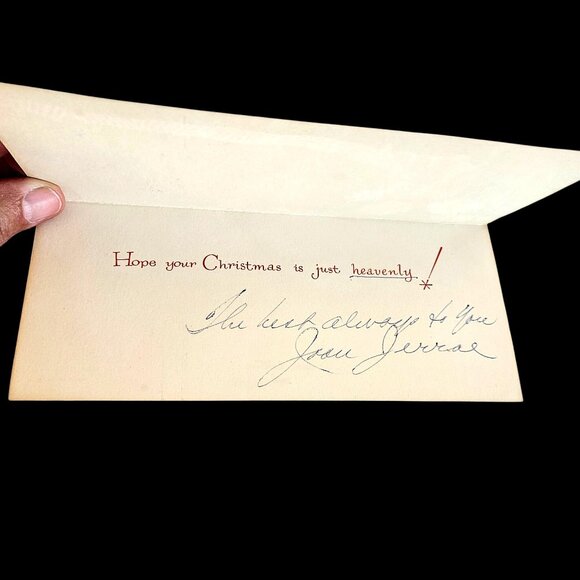 Hope your Christmas is just heavenly!
The best always to you
Joan Jerrae